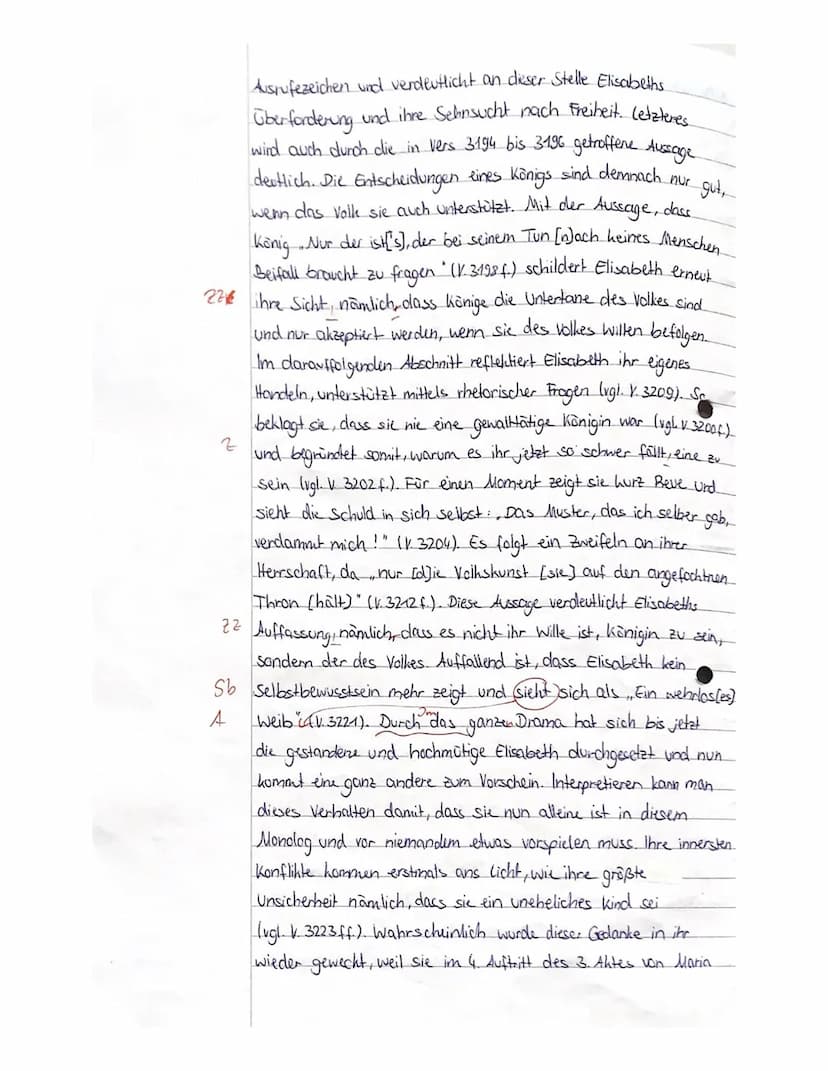 Ausrufezeichen und verdeutlicht an dieser Stelle Elisabeths
Überforderung und ihre Sehnsucht nach Freiheit. Letzteres
wird auch durch die in Vers 3194 bis 3196 getroffene Aussage
deutlich. Die Entscheidungen eines Königs sind demnach nur gut,
wenn das Volk sie auch unterstützt. Mit der Aussage, dass
König „Nur der ist['s], der bei seinem Tun [n]ach keines Menschen
Beifall braucht zu fragen" (V. 3198 f.) schildert Elisabeth erneut
ZZ ihre Sicht, nämlich, dass Könige die Untertane des Volkes sind
und nur akzeptiert werden, wenn sie des Volkes Willen befolgen.
Im darauffolgenden Abschnitt reflektiert Elisabeth ihr eigenes
Handeln, unterstützt mittels rhetorischer Fragen (vgl. V. 3209). So
beklagt sie, dass sie nie eine gewalttätige Königin war (vgl. V. 3200 f.)
Z und begründet somit, warum es ihr jetzt so schwer fällt, eine zu
sein (vgl. V. 3202 f.). Für einen Moment zeigt sie kurz Reue und
sieht die Schuld in sich selbst: „Das Muster, das ich selber gab,
verdammt mich!" (V. 3204). Es folgt ein Zweifeln an ihrer
Herrschaft, da „nur [d]ie Volksgunst [sie] auf den angefochtnen
Thron (hält)" (V. 3212 f.). Diese Aussage verdeutlicht Elisabeths
ZZ Auffassung, nämlich, dass es nicht ihr Wille ist, Königin zu sein,
sondern der des Volkes. Auffallend ist, dass Elisabeth kein
Sb Selbstbewusstsein mehr zeigt und sieht sich als „Ein wehrlos[es]
A Weib" (V. 3221). Durch das ganzen Drama hat sich bis jetzt
die gestandene und hochmütige Elisabeth durchgesetzt und nun
kommt eine ganz andere zum Vorschein. Interpretieren kann man
dieses Verhalten damit, dass sie nun alleine ist in diesem
Monolog und vor niemandem etwas vorspielen muss. Ihre innersten
Konflikte kommen erstmals ans Licht, wie ihre größte
Unsicherheit nämlich, dass sie ein uneheliches Kind sei
(vgl. V. 3223 ff.). Wahrscheinlich wurde dieser Gedanke in ihr
wieder geweckt, weil sie im 4. Auftritt des 3. Aktes von Maria